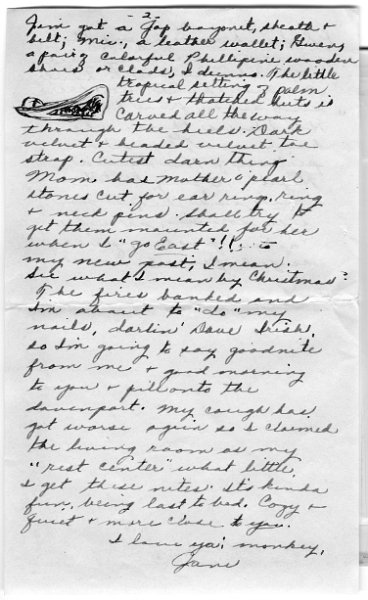 -2-
Jim got a Jap bayonet, sheath &
belt; Mic., a leather wallet; Gweny
a pair of colorful Phillipine wooden
shoes or clods, I dunno. The little
tropical setting of palm
trees & thatched huts is
carved all the way
through the heels. Dark
velvet & beaded velvet toe
strap. Cutest darn thing
Mom has Mother o' pearl
stones cut for ear rings, ring
& neck pins. Shall try to
get them mounted for her
when I "go East"!!! - to
my new post, I mean.
See what I mean by Christmas?
The fires banked and
I'm about to "do" my
nails, darlin' Dave Irish,
so I'm going to say goodnite
from me & good morning
to you & pill onto the
davenport. My cough has
got worse again so I claimed
the living room as my
"rest center" what little
I get these nites. It's kinda
fun, being last to bed. Cozy &
quiet & more close to you.
I love ya; monkey,
Jane